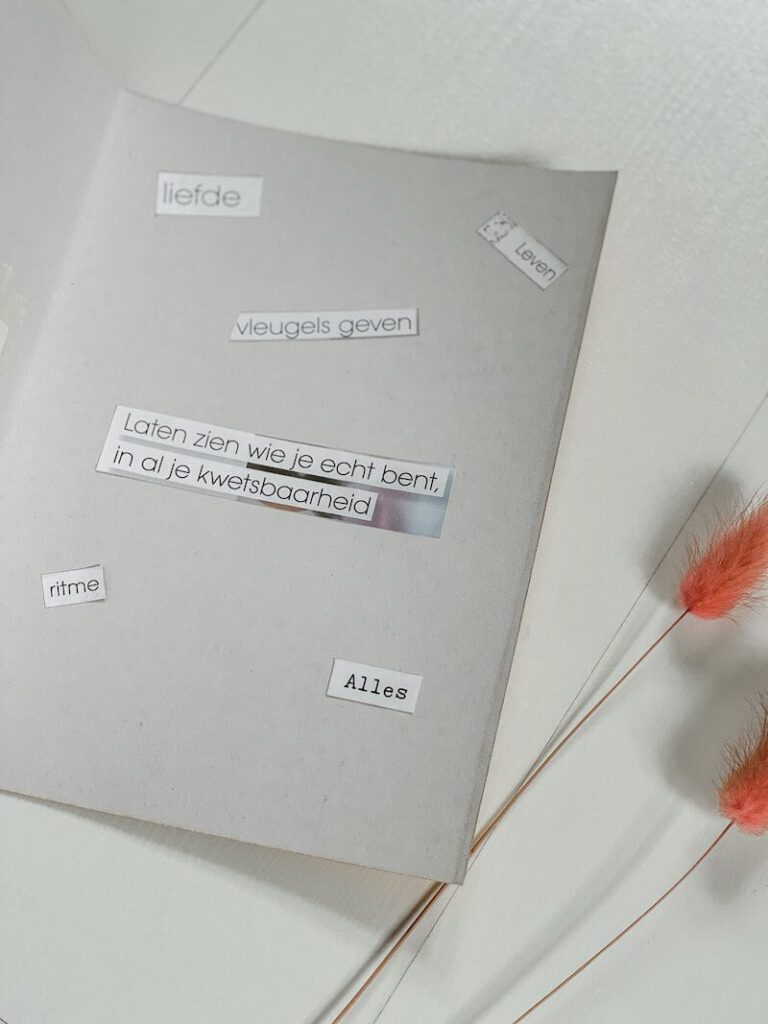 liefde
Leven
vleugels geven
Laten zien wie je echt bent,
in al je kwetsbaarheid
ritme
Alles